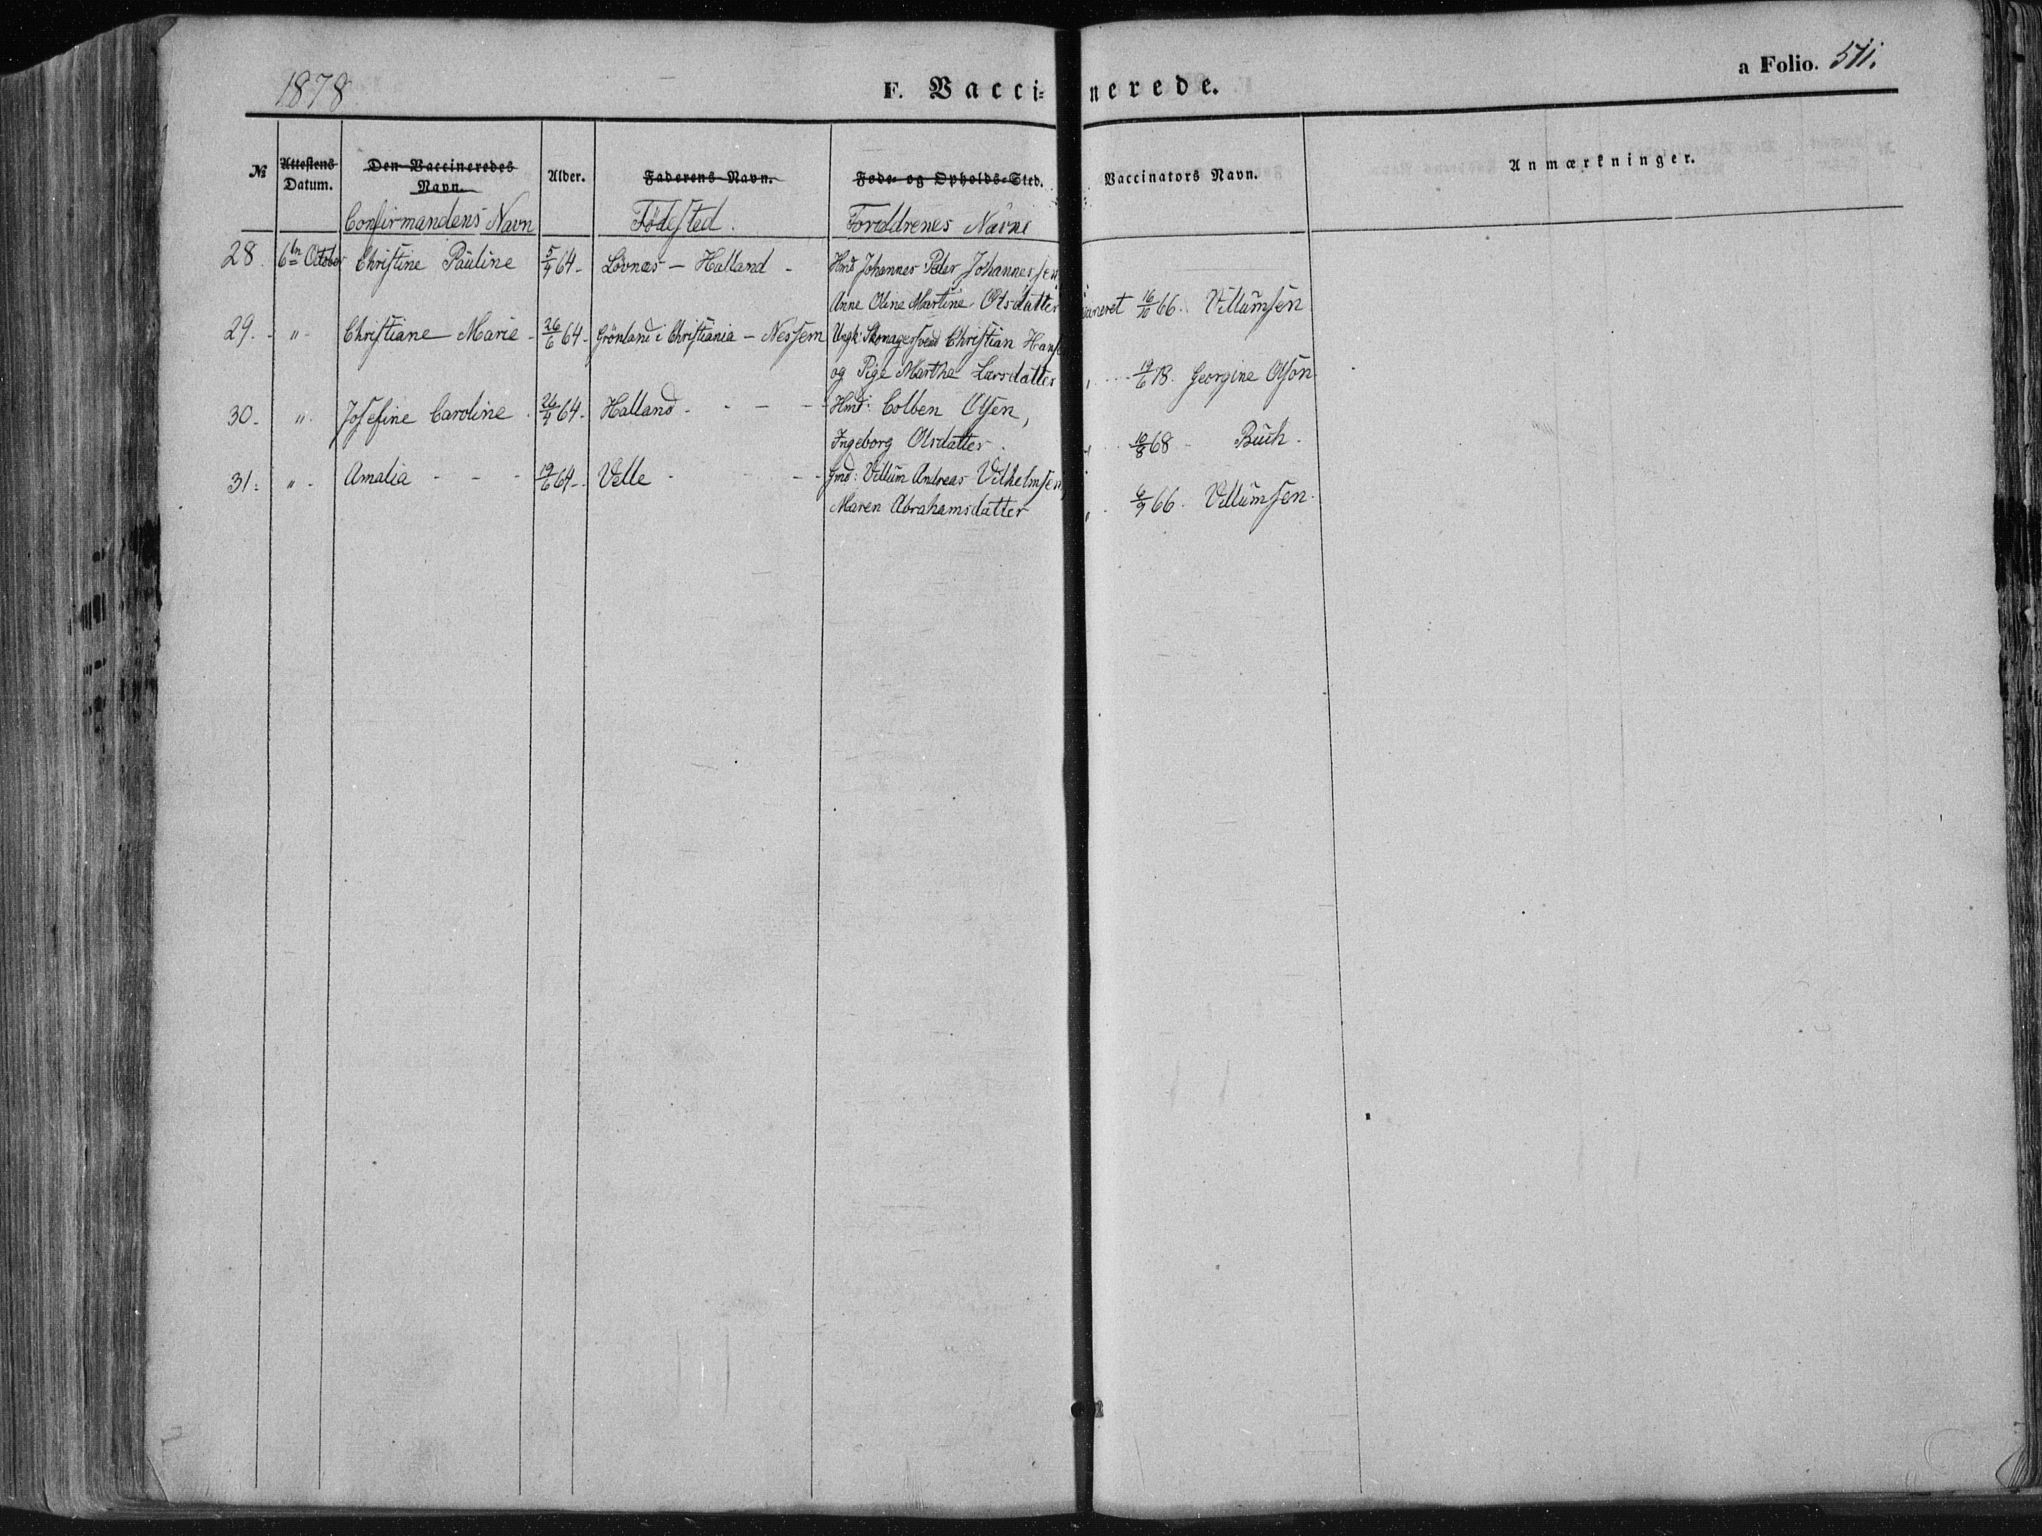 1878
F. Vaccinerede.
a Folio. 511.
№ Attestens Datum. Den Vaccineredes Navn. Alder. Faderens Navn. Føde- og Opholds-Sted. Vaccinators Navn. Anmærkninger.
Confirmandens Navn Födested. Foreldrenes Navne
28. 6te October Christine Pauline 5/9 64. Lövnæs — Halland - Hmd Johannes Peder Johannessen
Anne Oline Martine Olsdatter 16/10 66. Villumsen
29. " - Christiane Marie - 26/6 64. Grönland i Christiania — Nessem Ungk: Skomagersvend Christian Hansen
og Pige Marthe Larsdatter " 19/6 78. Georgine Olson
30. " Josefine Caroline 26/9 64. Halland - - - - Hmd: Colben Olsen,
Ingeborg Olsdatter " 10/8 68 - Buch.
31. " - Amalia - - - 19/6 64. Velle - - - Gmd: Villum Andreas Vilhelmsen,
Maren Abrahamsdatter " 6/9 66. Villumsen.